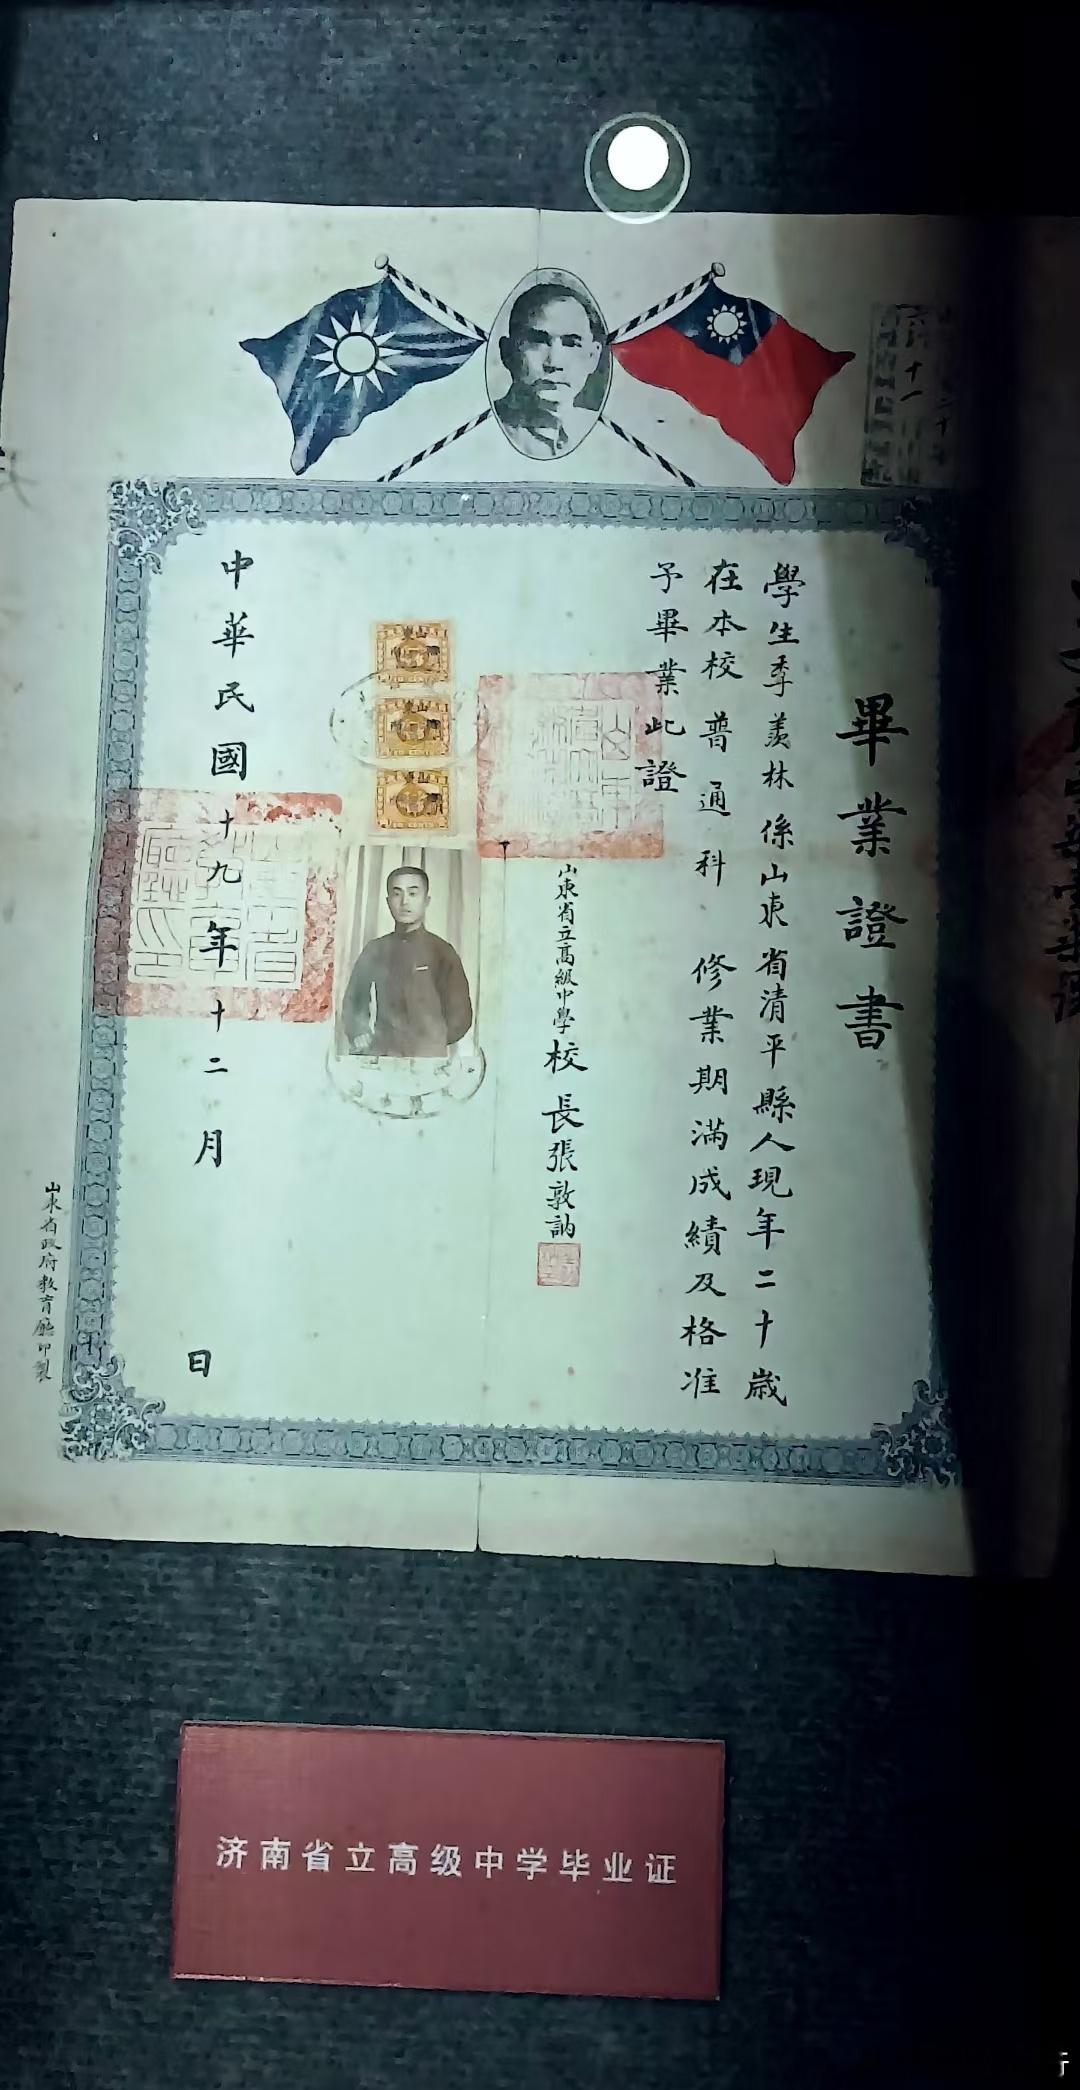 畢業證書
學生季羨林係山東省清平縣人現年二十歲
在本校普通科修業期滿成績及格准
予畢業此證
山東省立高級中學校長張敦訥
中華民國十九年十二月 日
山東省政府教育廳印製
济南省立高级中学毕业证